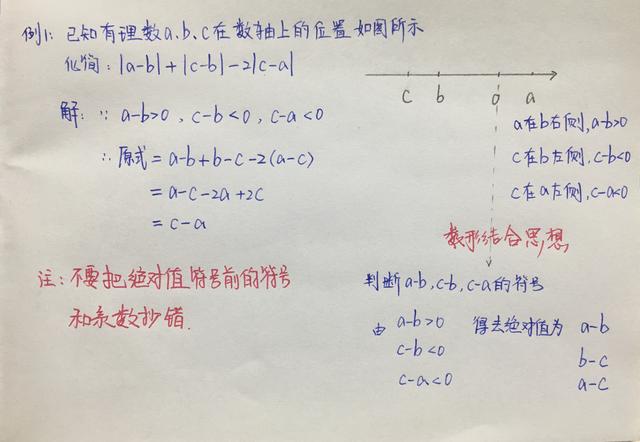 例1: 已知有理数a、b、c在数轴上的位置如图所示
化简: |a-b|+|c-b|-2|c-a|
c b 0 a
解: ∵ a-b>0, c-b<0, c-a<0
∴ 原式 = a-b+b-c-2(a-c)
= a-c-2a+2c
= c-a
注: 不要把绝对值符号前的符号
和系数抄错.
a在b右侧, a-b>0
c在b左侧, c-b<0
c在a左侧, c-a<0
数形结合思想
判断a-b, c-b, c-a的符号
由 a-b>0 得去绝对值为 a-b
c-b<0 b-c
c-a<0 a-c